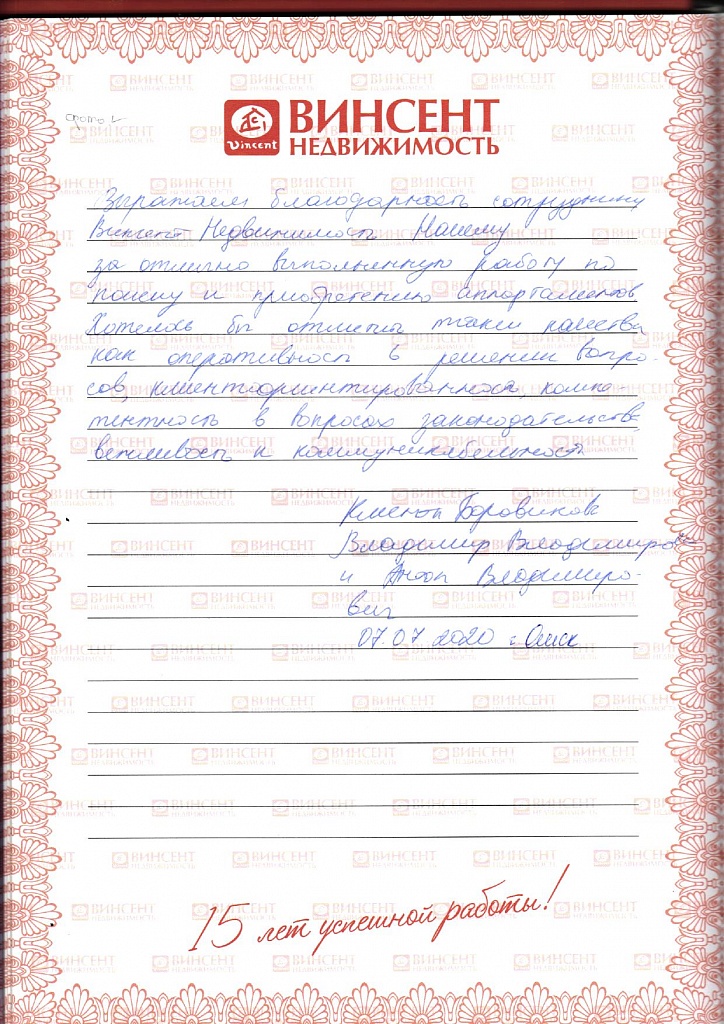 Vincent
ВИНСЕНТ
НЕДВИЖИМОСТЬ
Выражаем благодарность сотруднику
Винсент Недвижимость
за отлично выполненную работу по
поиску и приобретению аппортаментов
Хотелось бы отметить такие качества
как оперативность в решении вопро-
сов, клиентоориентированность, компе-
тентность в вопросах законодательства
вежливость и коммуникабельность
Клиенты
Владимир Владимирович
и Владимиро-
вич
07.07 2020 г. Омск
15 лет успешной работы!